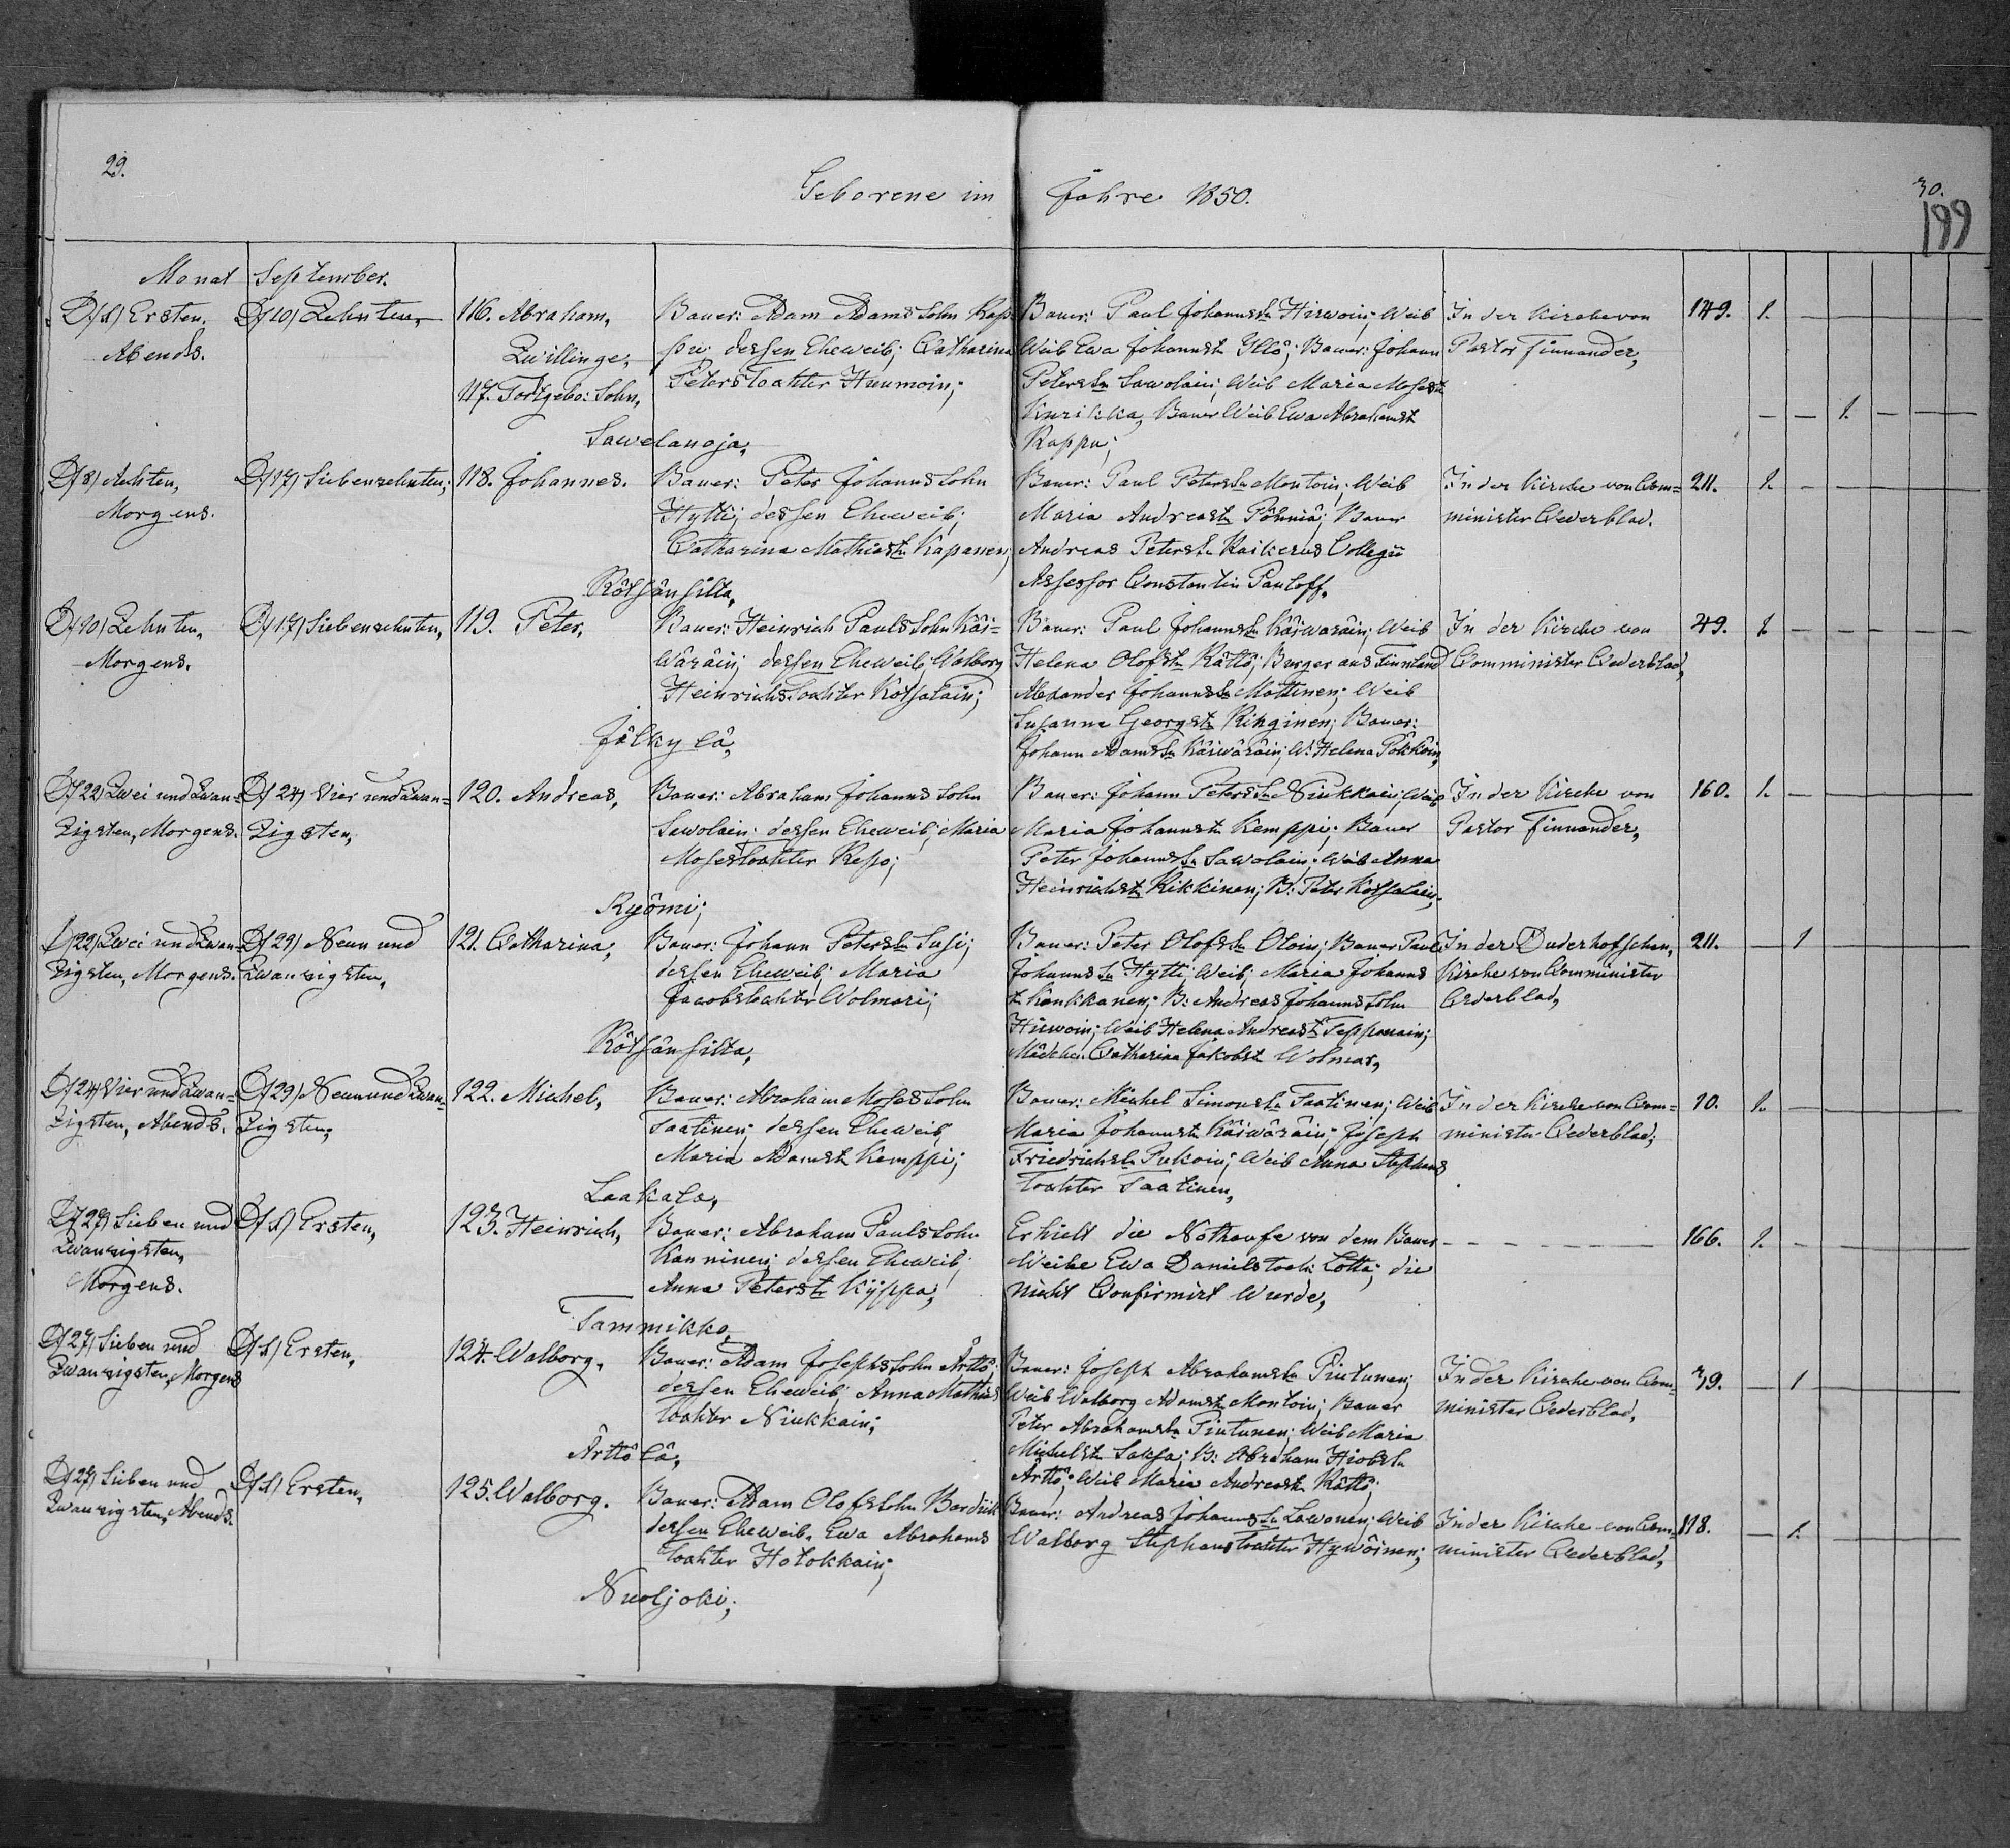 29.
Geborene im Jahre 1850.
30.
199
Monat September.
D/1/ Ersten,
Abends.
D/10/ Zehnten,
116. Abraham,
Zwillinge,
117. Todtgebo: Sohn,
Bauer: Adam Adams Sohn Kap
pu; dessen Eheweib; Catharina
Peters Tochter Huumoin;
Sawelanoja,
Bauer: Paul Johannssn Hirwoin; Weib
Weib Ewa Johannst Yllö; Bauer: Johann
Peterssn Sawolain; Weib Maria Mosest
Kurikka, Bauer Weib Ewa Abrahamst
Kappu;
In der Kirche von
Pastor Finnander,
149. 1.
1.
D/8/ Achten,
Morgens.
D/17/ Siebenzehnten,
118. Johannes.
Bauer: Peter Johanns Sohn
Hytti; dessen Eheweib;
Catharina Mathiast Kapanen,
Rötsänsilta,
Bauer: Paul Peterssn Montoin; Weib
Maria Andreast Pöhniä; Bauer
Andreas Peters Raikerus Collegii
Assessor Constantin Pauloff.
In der Kirche von Com=
minister Cederblad.
211. 1.
D/10/ Zehnten,
Morgens.
D/17/ Siebenzehnten,
119. Peter,
Bauer: Heinrich Pauls Sohn Käi=
wäräin; dessen Eheweib; Walborg
Heinrichs Tochter Kotsalain;
Jälkylä,
Bauer: Paul Johannssn Käiwäräin; Weib
Helena Olofst Rättö; Burger aus Finnland
Alexander Johannssn Mattinen; Weib
Susanna Georgst Ringinen; Bauer:
Johann Adamssn Käiwäräin; W: Helena Pökköin,
In der Kirche von
Comminister Cederblad,
49. 1
D/22/ Zwei und Zwan=
zigsten, Morgens.
D/24/ Vier und Zwan=
zigsten,
120. Andreas,
Bauer: Abraham Johanns Sohn
Sawolain; dessen Eheweib; Maria
Moses Tochter Repo;
Ryömi;
Bauer: Johann Peterssn Niukkain; Weib
Maria Johannst Kemppi; Bauer
Peter Johannssn Sawolain; Weib Anna
Heinrichst Kikkinen; B: Peter Kotsalain,
In der Kirche von
Pastor Finnander,
160. 1.
D/22/ Zwei und Zwan
zigsten, Morgens.
D/29/ Neun und
Zwanzigsten,
121. Catharina,
Bauer: Johann Peterssn Susi;
dessen Eheweib; Maria
Jacobs Tochter Wolmari;
Rötsänsilta,
Bauer: Peter Olofssn Oloin; Bauer Paul
Johannssn Hytti; Weib; Maria Johanns
t Kaukkanen; B: Andreas Johanns Sohn
Hirwoin; Weib Helena Andreast Tepponain;
Mädchen Catharina Jakobst Wolmar,
In der Duderhofschen,
Kirche von Comminister
Cederblad,
211. 1
D/24/ Vier und Zwan=
zigsten, Abends.
D/29/ Neunund Zwan=
zigsten;
122. Michel,
Bauer: Abraham Moses Sohn
Taatinen; dessen Eheweib
Maria Adamst Kemppi;
Laakala,
Bauer: Michel Simonssn Taatinen; Weib
Maria Johannst Käiwäräin; Joseph
Friedrichssn Pukoin; Weib Anna Stephans
Tochter Taatinen,
In der Kirche von Com=
minister Cederblad;
10. 1.
D/27/ Sieben und
Zwanzigsten,
Morgens.
D/1/ Ersten,
123. Heinrich,
Bauer: Abraham Pauls Sohn
Kanninen; dessen Eheweib;
Anna Peterst Kyppa,
Tammikko,
Erhielt die Nothaufe von dem Bauer
Weibe Ewa Daniels toch: Lotta; die
nicht Confirmirt Wurde,
166. 1.
D/27/ Sieben und
Zwanzigsten, Morgens
D/1/ Ersten,
124. Walborg,
Bauer: Adam Josephs Sohn Ärttö;
dessen Eheweib Anna Mathias
Tochter Niukkain;
Ärttölä,
Bauer: Joseph Abrahamssn Piutunen;
Weib Walborg Adamst Montoin; Bauer
Peter Abrahamssn Piutunen; Weib Maria
Michelst Saksa; B: Abraham Hiobssn
Ärttö; Weib Maria Andreast Rättö;
In der Kirche von Com=
minister Cederblad,
39. 1
D/27/ Sieben und
Zwanzigsten, Abends.
D/1/ Ersten,
125. Walborg.
Bauer: Adam Olofs Sohn
dessen Eheweib. Ewa Abrahams
Tochter Hotokkain;
Nuoljoki;
Bauer: Andreas Johannssn Lawonen; Weib
Walborg Stephans Tochter Hywöinen;
In der Kirche von Com=
minister Cederblad,
118. 1.